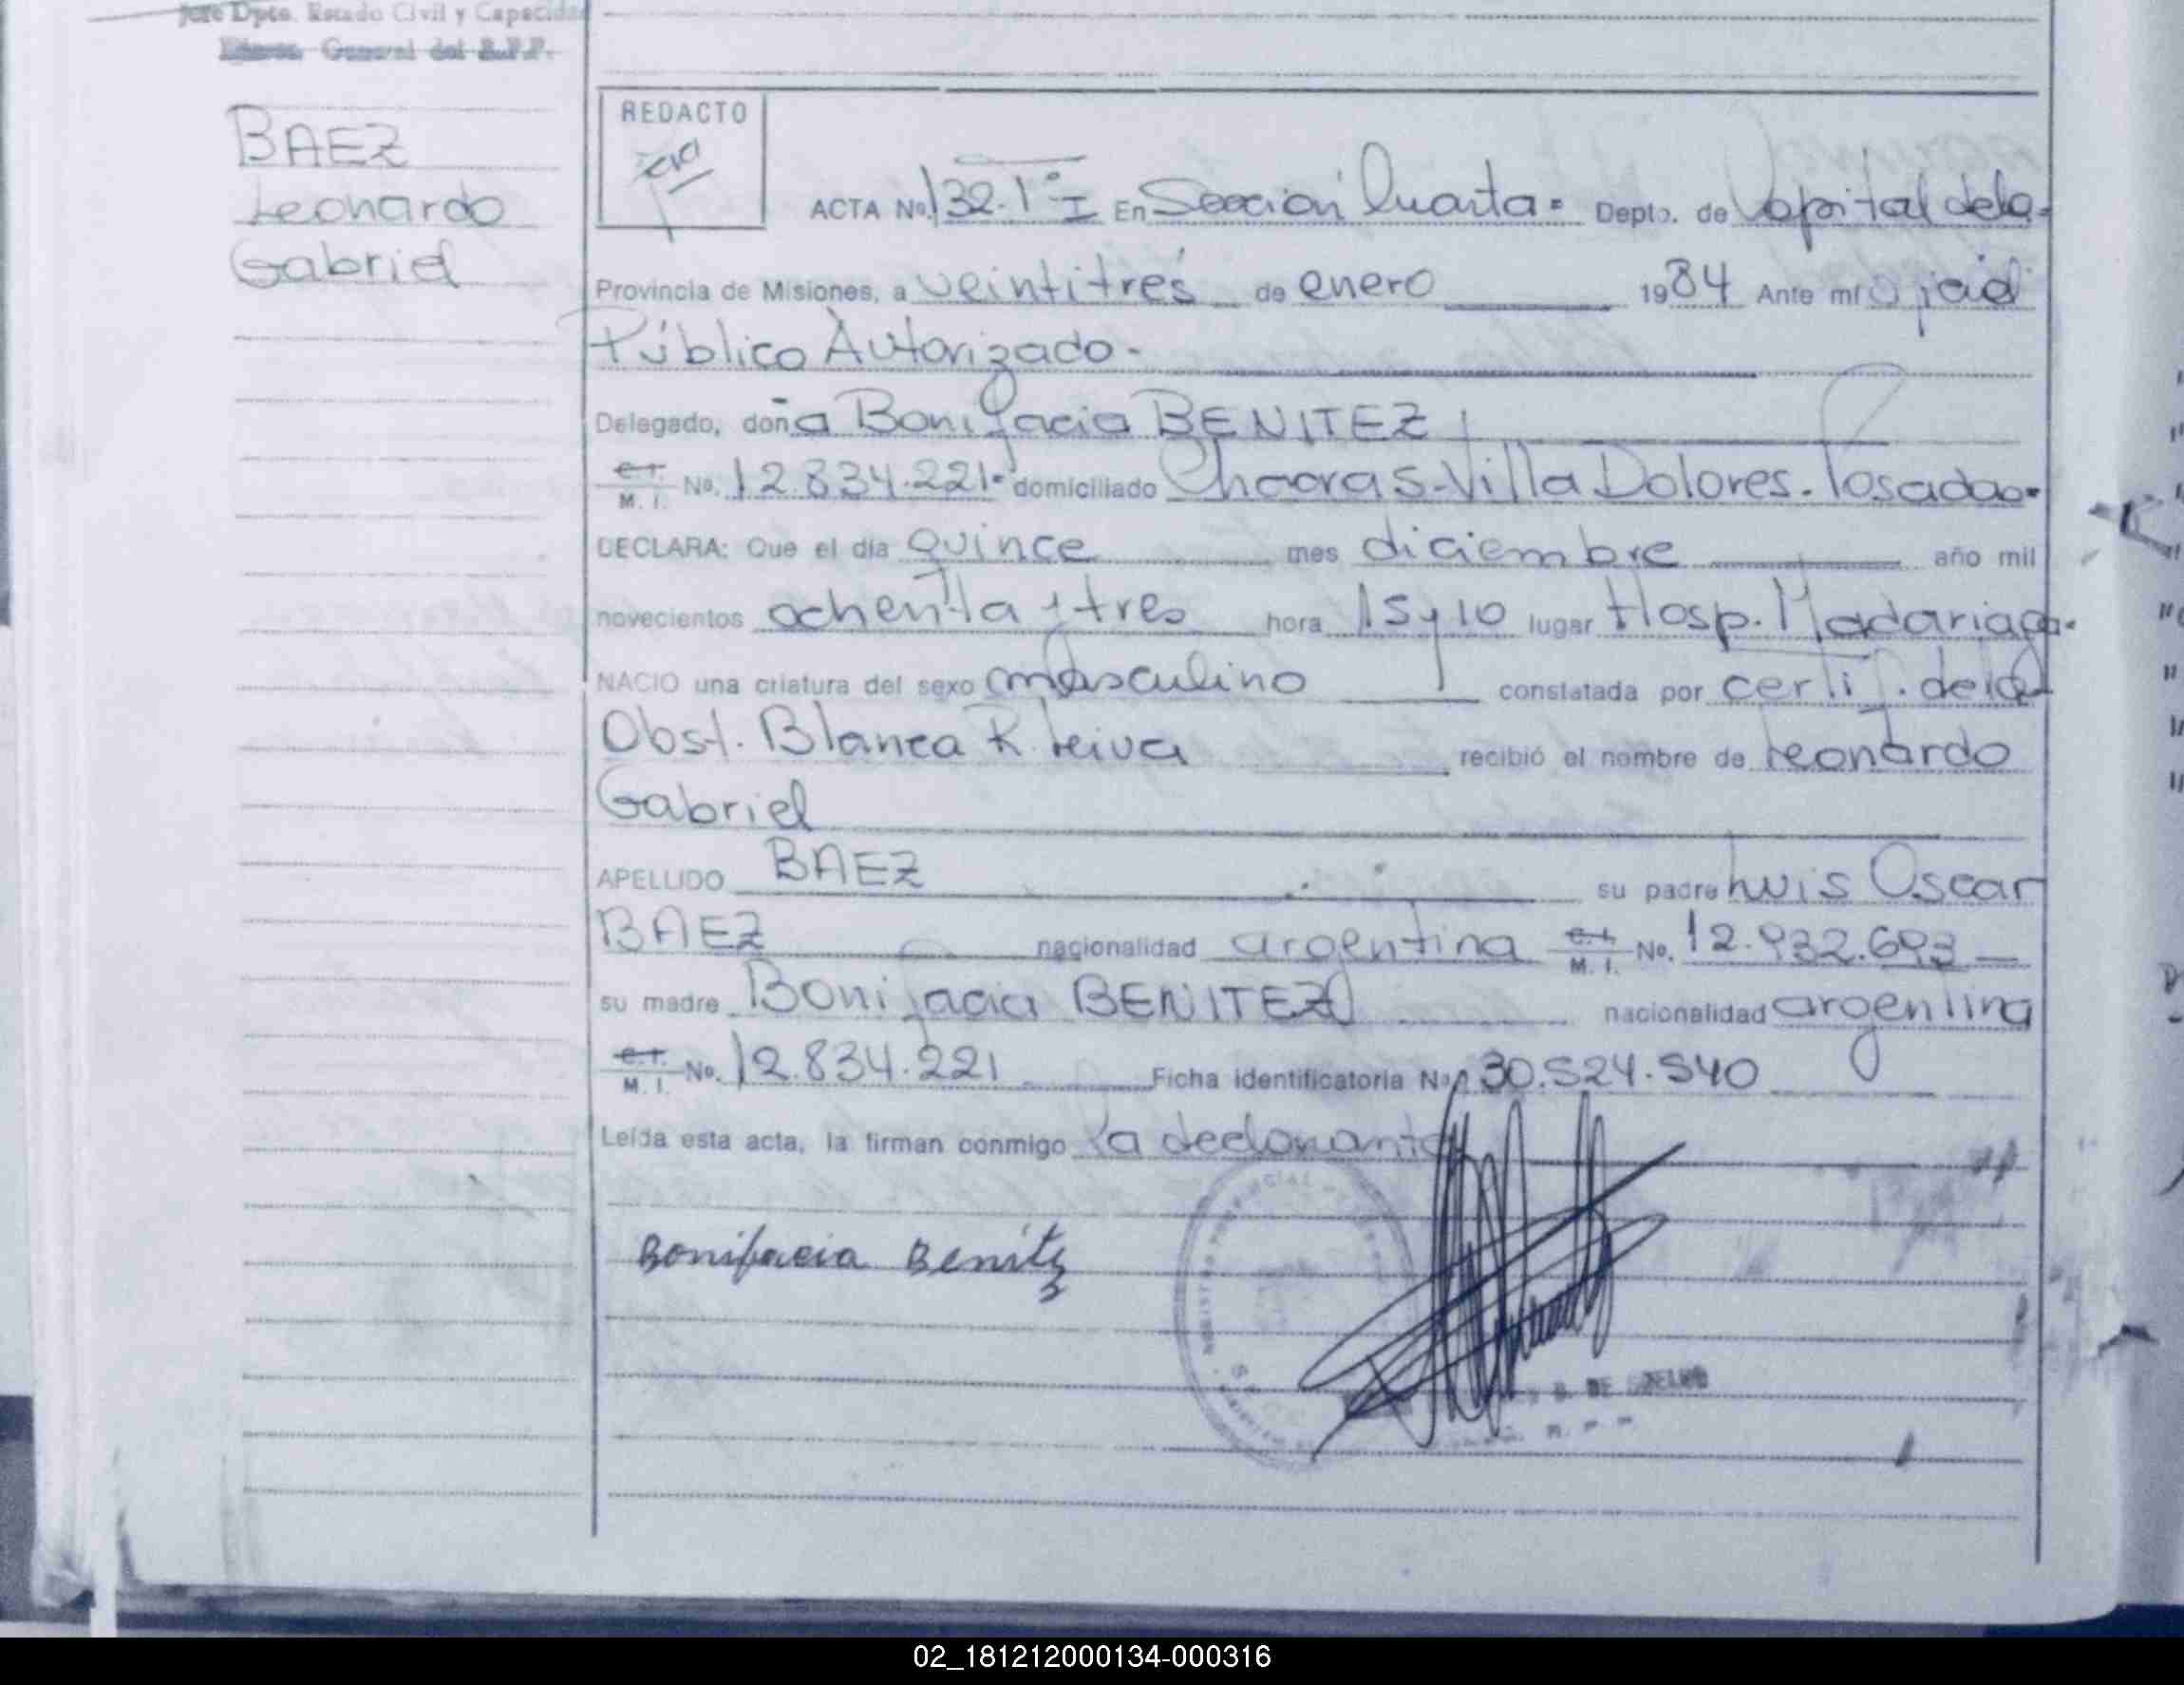 Jefe Dpto. Estado Civil y Capacidad
General del R.P.P.
BAEZ
Leonardo
Gabriel
REDACTO
ACTA No. 132.1°I En Sección Cuarta= Depto. de Capital de la-
Provincia de Misiones, a veintitrés de enero 1984 Ante mí Oficial
Público Autorizado-
Delegado, doña Bonifacia BENITEZ
C.I. M. I. No. 12.834.221- domiciliado Chacra 5-Villa Dolores. Posadas-
DECLARA: Que el día quince mes diciembre año mil
novecientos ochenta y tres hora 15 y 10 lugar Hosp. Madariaga-
NACIO una criatura del sexo masculino constatada por certif. de la
Obst. Blanca R. Leiva recibió el nombre de Leonardo
Gabriel
APELLIDO BAEZ su padre Luis Oscar
BAEZ nacionalidad argentina C.I. M. I. No. 12.932.693
su madre Bonifacia BENITEZ nacionalidad argentina
C.I. M. I. No. 12.834.221 Ficha identificatoria No. 30.524.540
Leída esta acta, la firman conmigo la declarante
Bonifacia Benitez
02_181212000134-000316